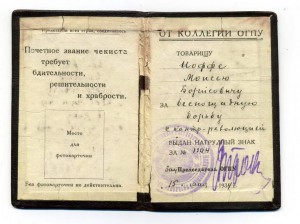 Почетное звание чекиста
требует
бдительности,
решительности
и храбрости.
Место
для
фотокарточки
Без фотокарточки не действительно.
ОТ КОЛЛЕГИИ ОГПУ
ТОВАРИЩУ
Иоффе
Моисею
за беспощадную
борьбу
с контр-революцией
ВЫДАН НАГРУДНЫЙ ЗНАК
ЗА №
Зам. Председателя ОГПУ